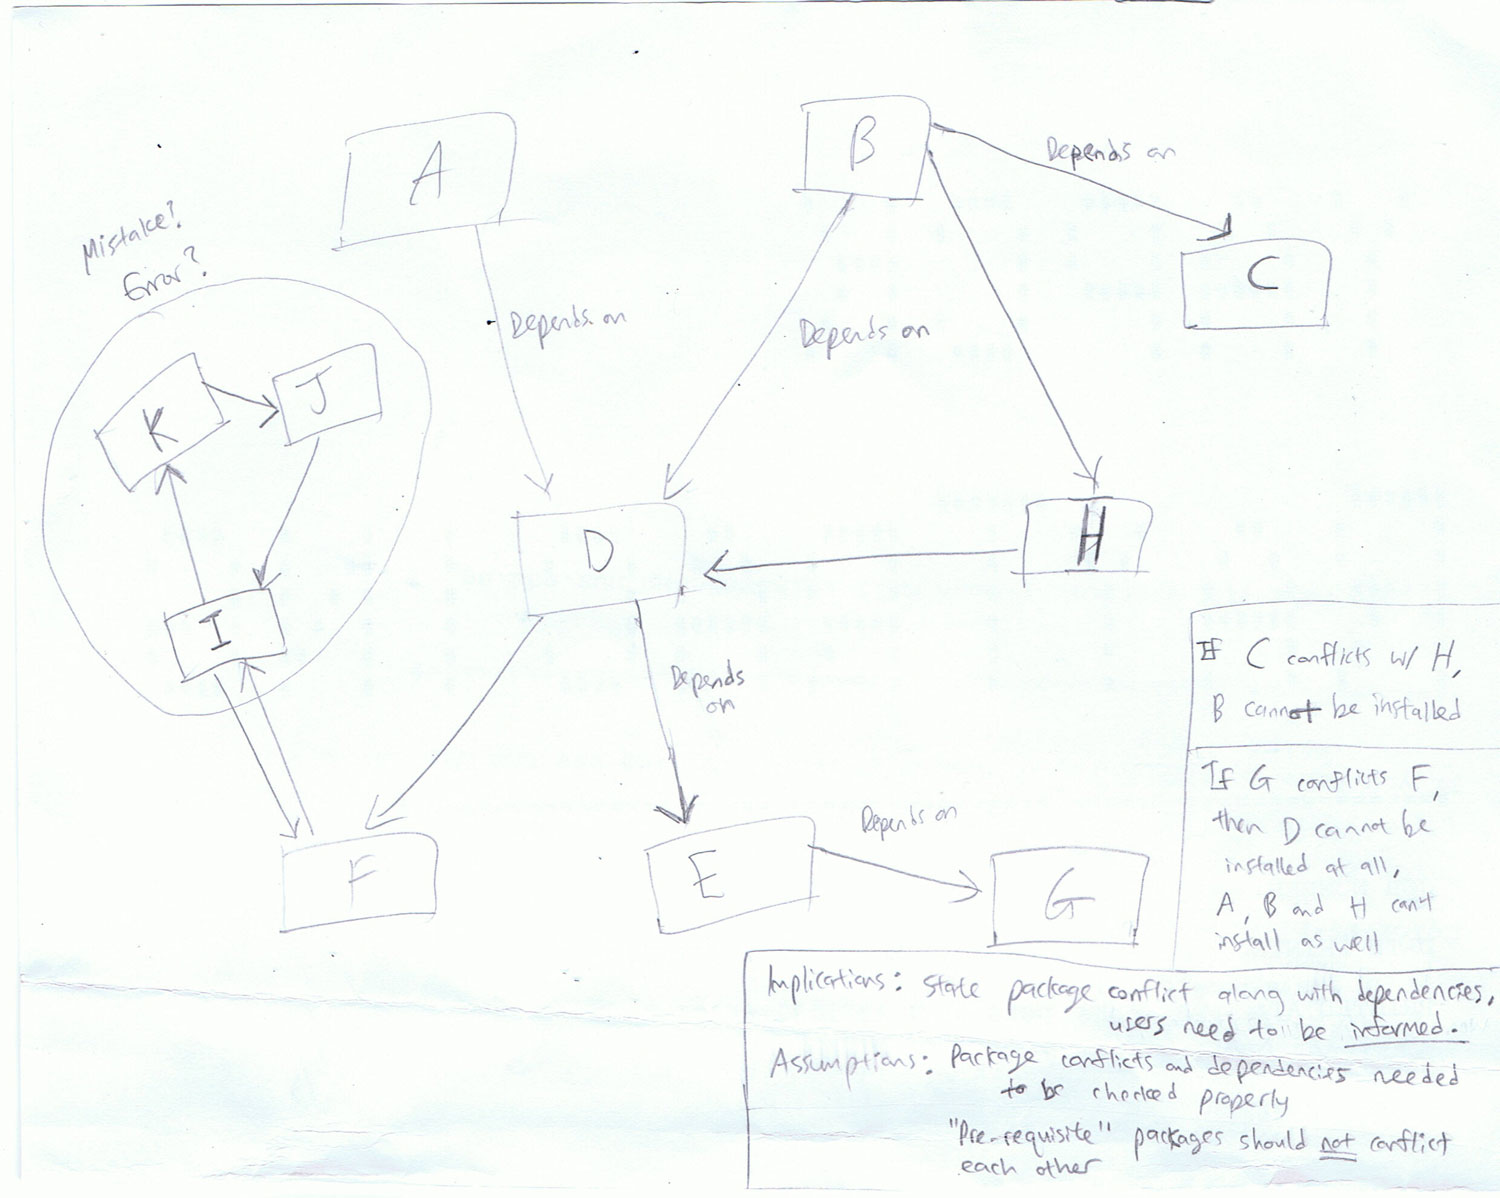 A
B
Depends on
C
Mistake?
Error?
Depends on
Depends on
K
J
D
H
I
Depends
on
If C conflicts w/ H,
B cannot be installed
If G conflicts F,
then D cannot be
installed at all,
A, B and H can't
install as well
F
E
Depends on
G
Implications: State package conflict along with dependencies,
users need to be informed.
Assumptions: Package conflicts and dependencies needed
to be checked properly
"Pre-requisite" packages should not conflict
each other